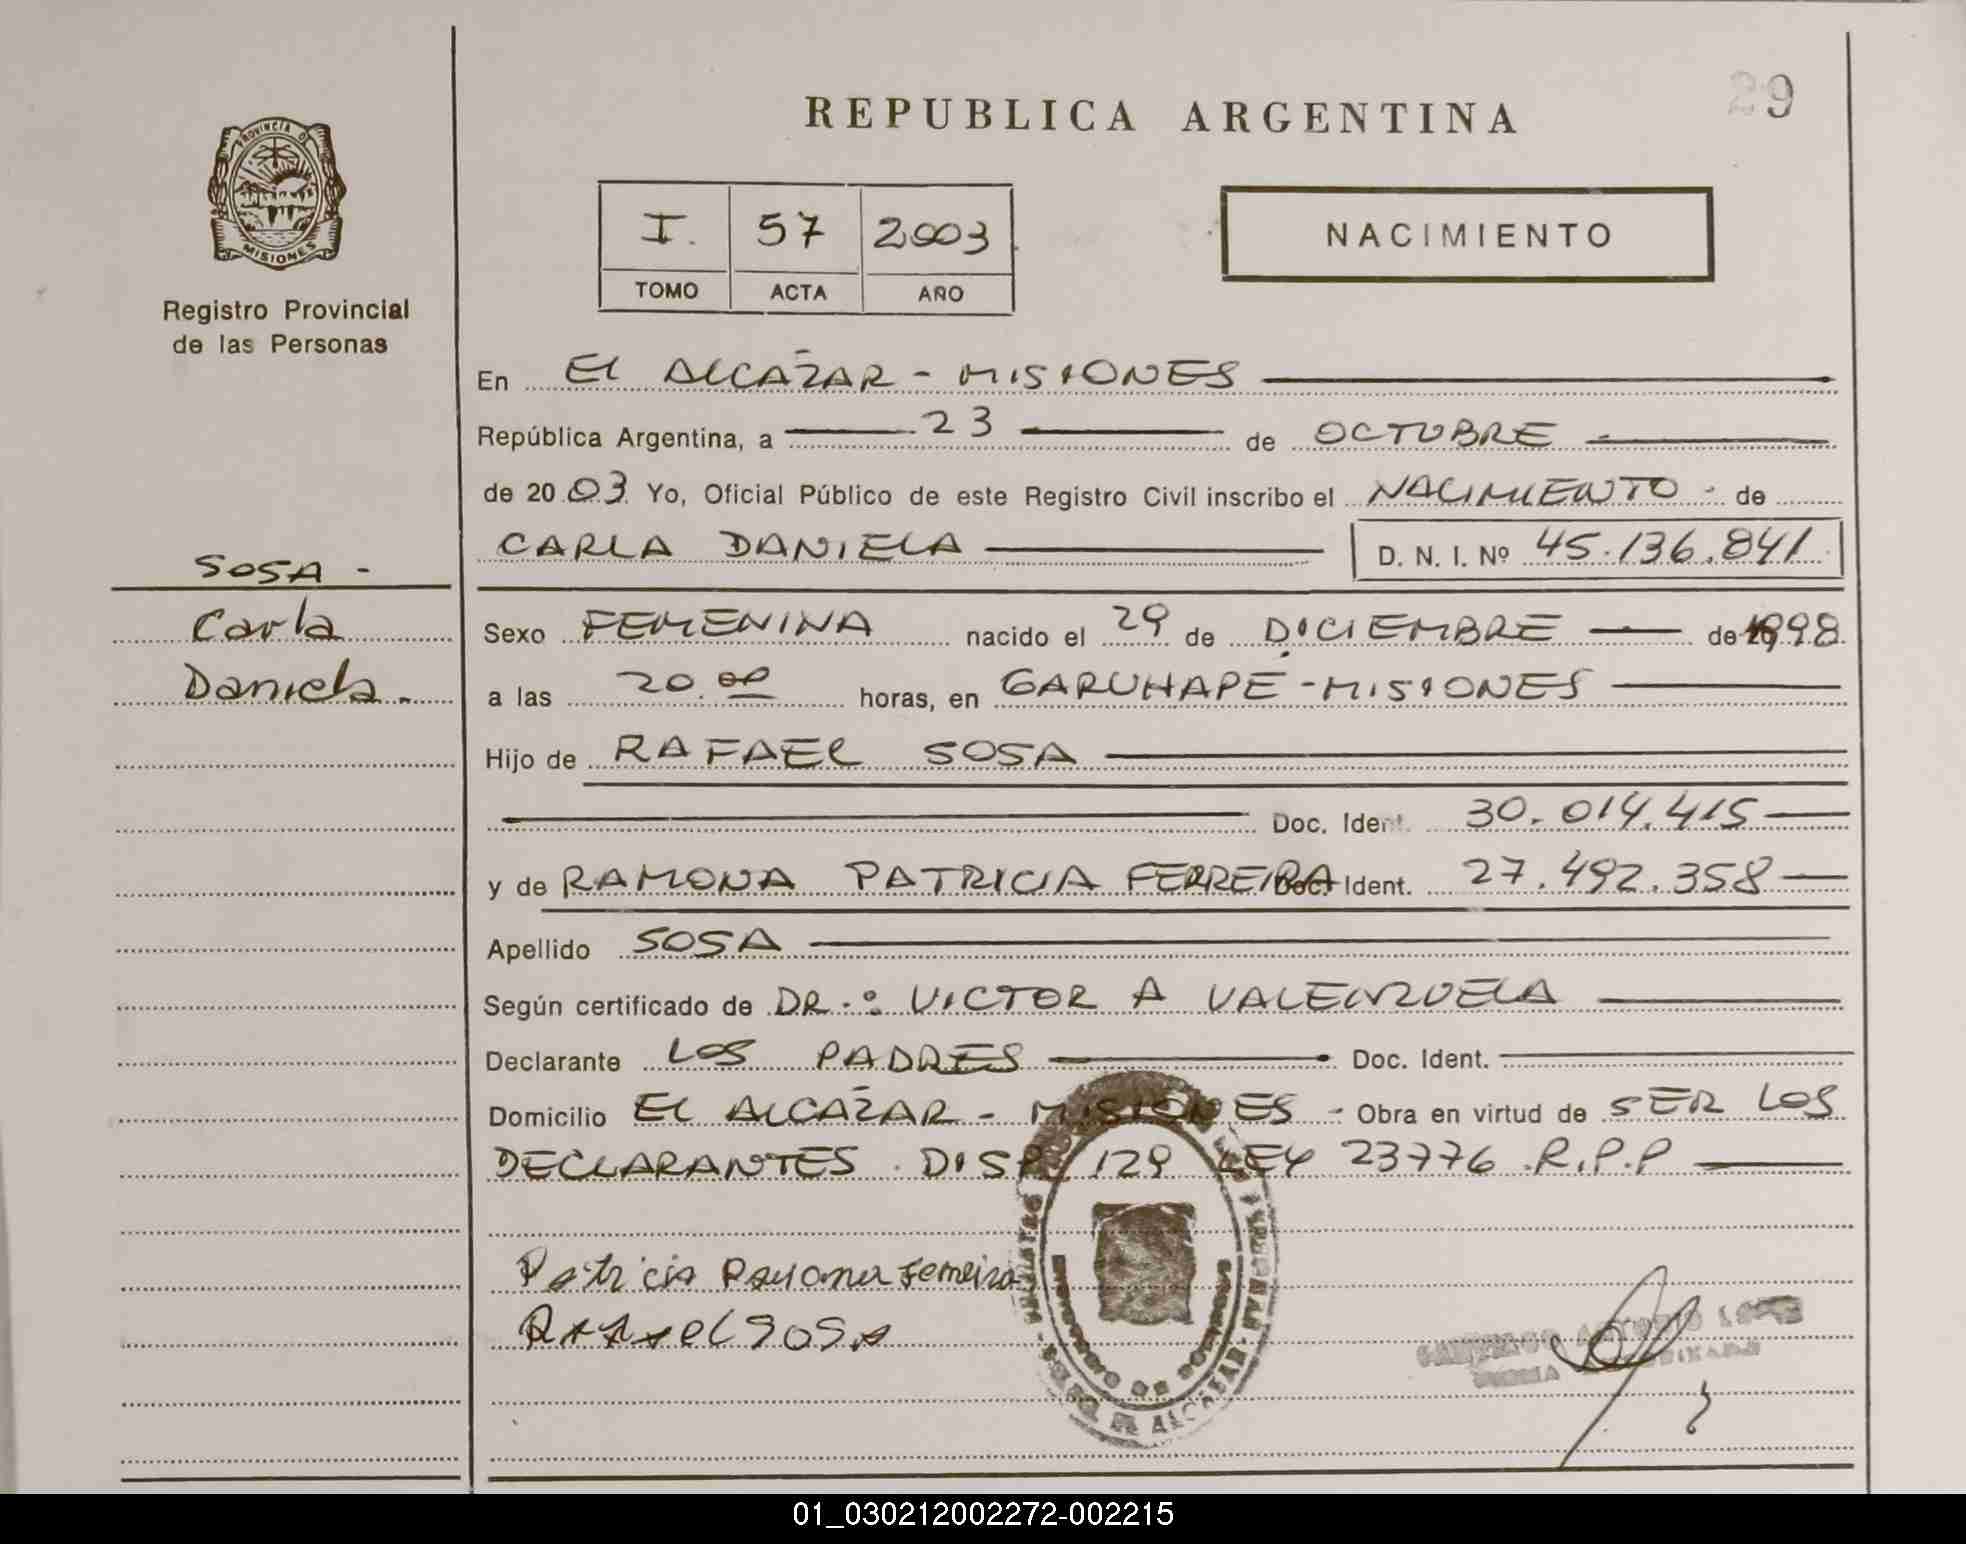 29
REPUBLICA ARGENTINA
PROVINCIA DE
MISIONES
Registro Provincial
de las Personas
I. 57 2003
TOMO ACTA AÑO
NACIMIENTO
En EL ALCAZAR - MISIONES
República Argentina, a 23 de OCTUBRE
de 2003 Yo, Oficial Público de este Registro Civil inscribo el NACIMIENTO - de
CARLA DANIELA D. N. I. Nº 45.136.841
SOSA -
Carla
Daniela.
Sexo FEMENINA nacido el 29 de DICIEMBRE de 1998
a las 20.00 horas, en GARUHAPE - MISIONES
Hijo de RAFAEL SOSA
Doc. Ident. 30.014.415
y de RAMONA PATRICIA FERREIRA Doc. Ident. 27.492.358
Apellido SOSA
Según certificado de DR.: VICTOR A VALENZUELA
Declarante LOS PADRES Doc. Ident.
Domicilio EL ALCAZAR - MISIONES - Obra en virtud de SER LOS
DECLARANTES. DISP. 129 LEY 23776 R.P.P
Patricia Ramona Ferreira
Rafael SOSA
DE ALCAZAR
01_030212002272-002215